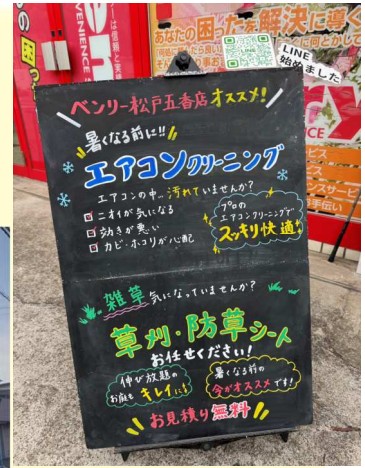 あなたの困ったを解決に導く
LINE
始めました
ベンリー松戸五香店オススメ!
暑くなる前に!!
エアコンクリーニング
エアコンの中…汚れていませんか?
ニオイが気になる
効きが悪い
カビ・ホコリが心配
プロの
エアコンクリーニングで
スッキリ快適
雑草気になっていませんか?
草刈・防草シート
お任せください!
伸び放題の
お庭も キレイに
暑くなる前の
今がオススメです!
お見積り無料